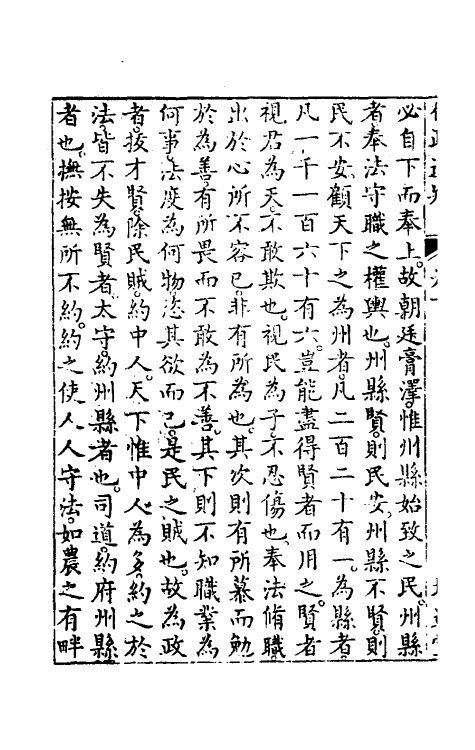 必自下而奉上故朝廷膏澤惟州縣始致之民州縣
者奉法守職之權輿也州縣賢則民安州縣不賢則
民不安顧天下之為州者凡二百二十有一為縣者
凡一千一百六十有六豈能盡得賢者而用之賢者
視君為天不敢欺也視民為子不忍傷也奉法脩職
出於心所不容已非有所為也其次則有所慕而勉
於為善有所畏而不敢為不善其下則不知職業為
何事法度為何物恣其欲而已是民之賊也故為政
者拔才賢除民賊約中人天下惟中人為多約之於
法皆不失為賢者太守約州縣者也司道約府州縣
者也撫按無所不約約之使人人守法如農之有畔